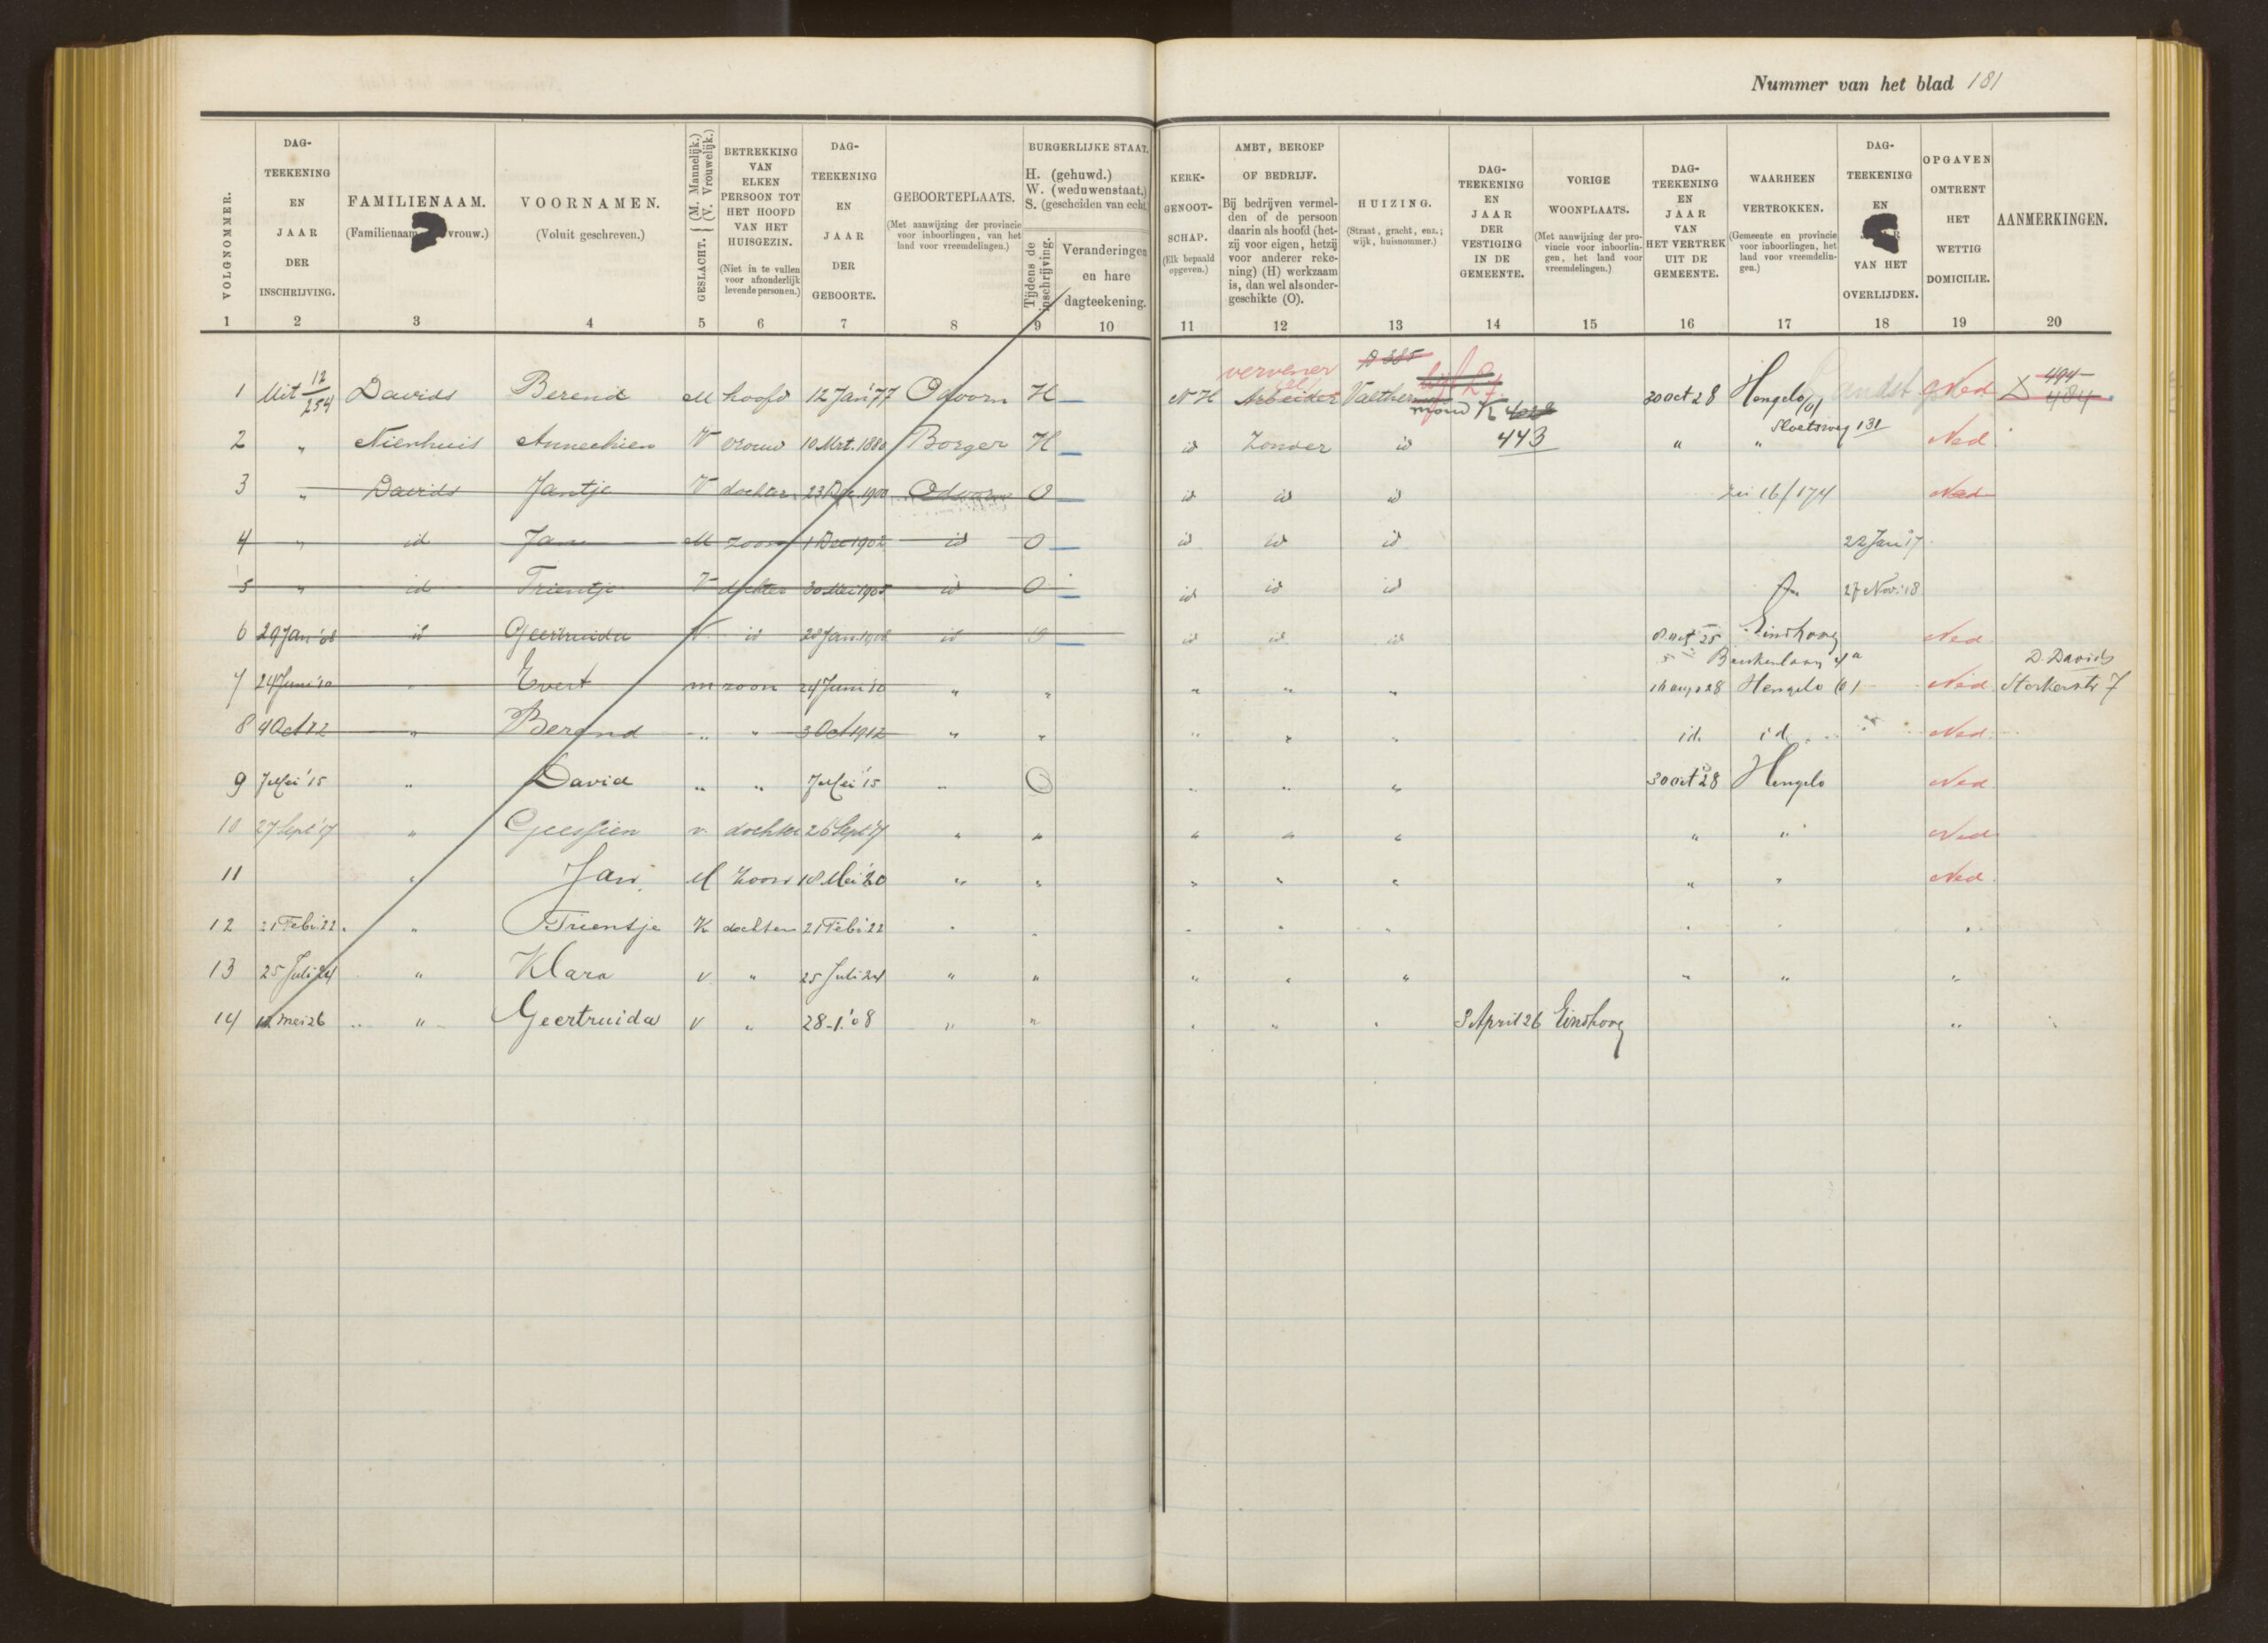 Nummer van het blad 181
VOLGNOMMER. 1
DAG- TEEKENING EN JAAR DER INSCHRIJVING. 2
FAMILIENAAM. (Familienaam vrouw.) 3
VOORNAMEN. (Voluit geschreven.) 4
GESLACHT. (M. Mannelijk.) (V. Vrouwelijk.) 5
BETREKKING VAN ELKEN PERSOON TOT HET HOOFD VAN HET HUISGEZIN. (Niet in te vullen voor afzonderlijk levende personen.) 6
DAG- TEEKENING EN JAAR DER GEBOORTE. 7
GEBOORTEPLAATS. (Met aanwijzing der provincie voor inboorlingen, van het land voor vreemdelingen.) 8
BURGERLIJKE STAAT. H. (gehuwd.) W. (weduwenstaat.) S. (gescheiden van echt)
Tijdens de inschrijving. 9
Veranderingen en hare dagteekening. 10
KERK- GENOOT- SCHAP. (Elk bepaald opgeven.) 11
AMBT, BEROEP OF BEDRIJF. Bij bedrijven vermelden of de persoon daarin als hoofd (hetzij voor eigen, hetzij voor anderer rekening) (H) werkzaam is, dan wel als ondergeschikte (O). 12
HUIZING. (Straat, gracht, enz.; wijk, huisnommer.) 13
DAG- TEEKENING EN JAAR DER VESTIGING IN DE GEMEENTE. 14
VORIGE WOONPLAATS. (Met aanwijzing der provincie voor inboorlingen, het land voor vreemdelingen.) 15
DAG- TEEKENING EN JAAR VAN HET VERTREK UIT DE GEMEENTE. 16
WAARHEEN VERTROKKEN. (Gemeente en provincie voor inboorlingen, het land voor vreemdelingen.) 17
DAG- TEEKENING EN VAN HET OVERLIJDEN. 18
OPGAVEN OMTRENT HET WETTIG DOMICILIE. 19
AANMERKINGEN. 20
vervener
1 Uit 12/254 Davids Berend M hoofd 12 Jan '77 Odoorn H N H Arbeider Valthermond K 30 Oct 28 Hengelo (O) Ned 494 484
Sloetsweg 131
2 " Nienhuis Annechien V vrouw 10 Mrt. 1880 Borger H id Zonder id 443 " " Ned
3 " Davids Jantje V dochter 23 Dec 1900 Odoorn O id id id zie 16/174 Ned
4 " id Jan M zoon 1 Dec 1902 id O id id id 22 Jan '17
5 " id Trientje V dochter 30 Mei 1905 id O id id id 27 Nov. '18
6 29 Jan '08 id Geertruida V id 28 Jan. 1908 id O id id id Oct '25 Eindhoven Ned
Beukenlaan 4a D. Davids
7 24 Juni '10 " Evert m zoon 24 Juni '10 " " " " " 16 aug 28 Hengelo (O) Ned. Storkerstr 7
8 4 Oct 12 " Berend " " 3 Oct 1912 " " " " " id. id. Ned.
9 7 Mei '15 " David " " 7 Mei '15 " O " " " 30 Oct '28 Hengelo Ned
10 27 Sept '17 " Geessien v. dochter 26 Sept '17 " " " " " " " Ned
11 " Jan M Zoon 18 Mei '20 " " " " " " " Ned.
12 21 Feb. '22 " Trientje V dochter 21 Feb. '22 " " " " " " " "
13 25 Juli 24 " Klara v " 25 Juli 24 " " " " " " " "
14 12 mei 26 " " Geertruida v " 28-1-'08 " " " " " 3 April 26 Eindhoven "